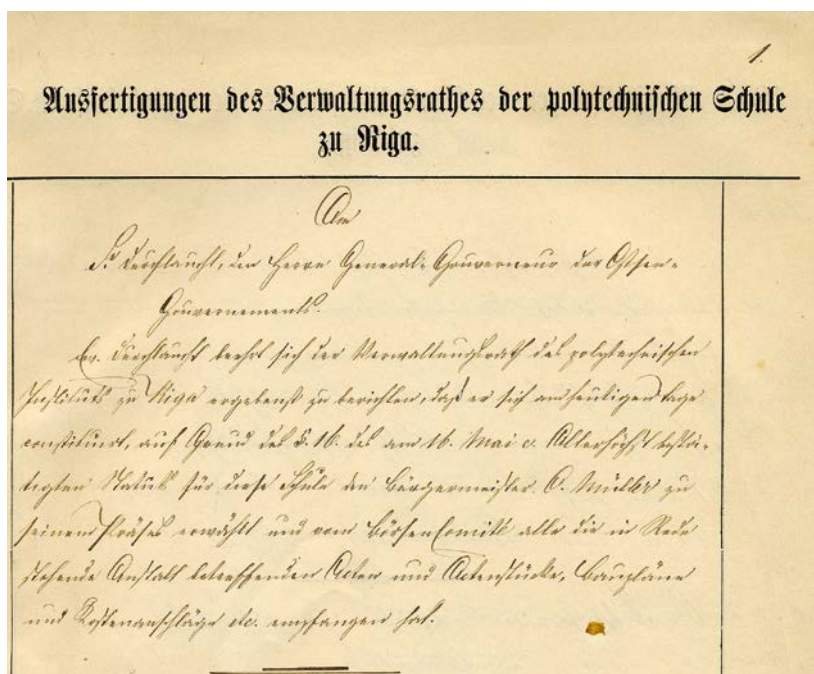 1.
Ausfertigungen des Verwaltungsrathes der polytechnischen Schule
zu Riga.
An
Sr Durchlaucht, den Herrn General-Gouverneur der Ostsee-
Gouvernements.
Ew. Durchlaucht beehrt sich der Verwaltungsrath des polytechnischen
Instituts zu Riga ergebenst zu berichten, daß er sich am heutigen Tage
constituirt, auf Grund des §. 16. des am 16. Mai c. Allerhöchst bestä-
tigten Statuts für diese Schule den Bürgermeister O. Müller zu
seinem Präses erwählt und vom Börsen Comité alle die in Rede
stehende Anstalt betreffenden Acten und Actenstücke, Baupläne
und Kostenanschläge etc. empfangen hat.